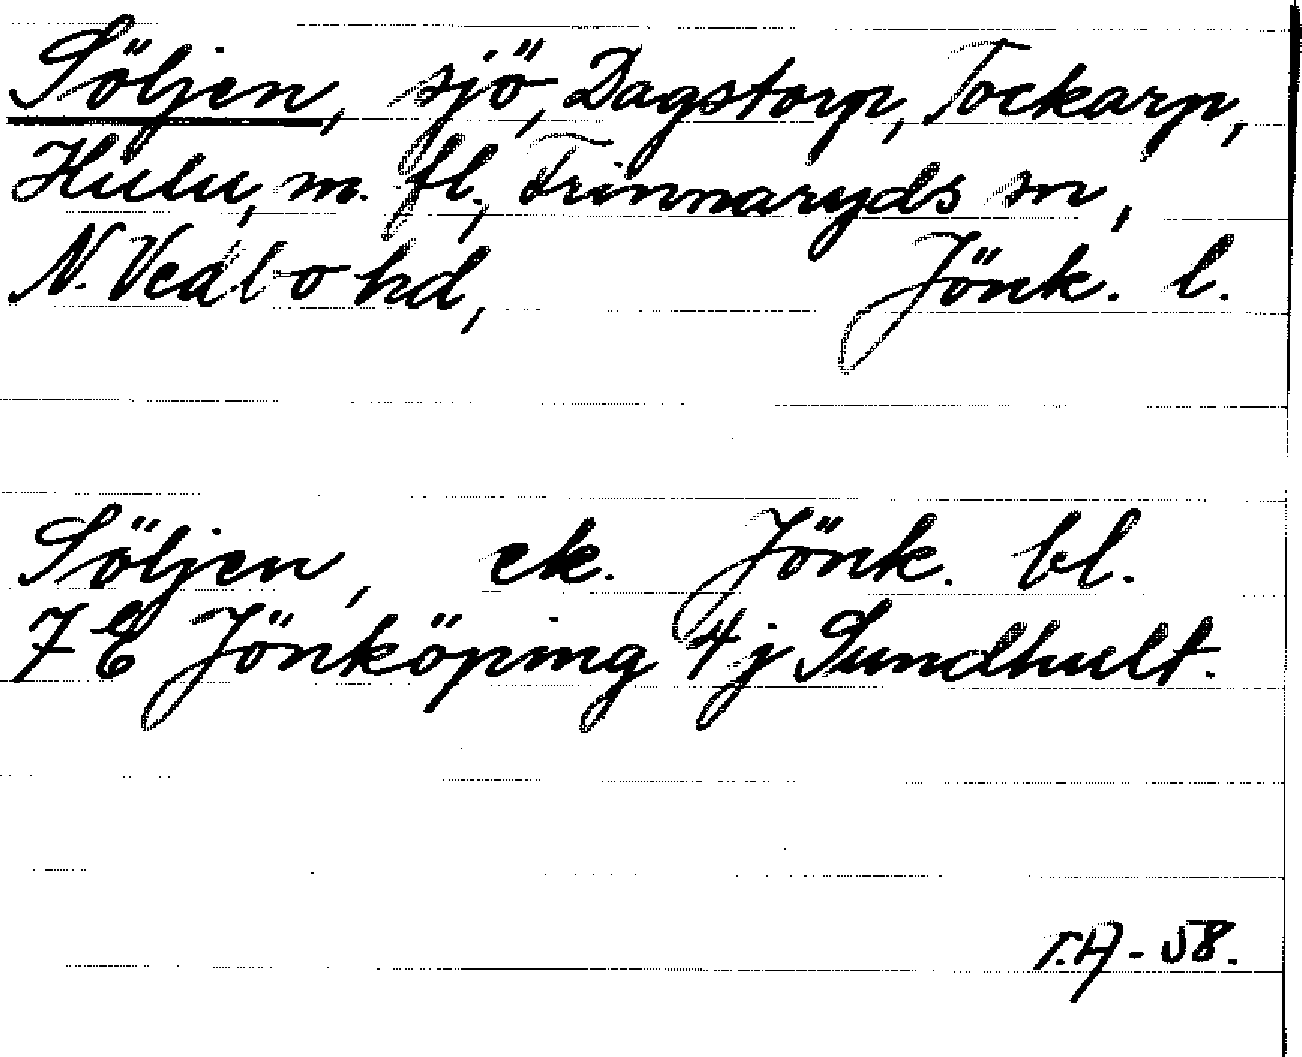 Söljen, sjö, Dagstorp, Tockarp,
Hulu, m. fl., Frinnaryds sn,
N. Vedbo hd, Jönk. l.
Söljen, ek. Jönk. bl.
7 E Jönköping 4 j Sundhult.
T.A - 58.